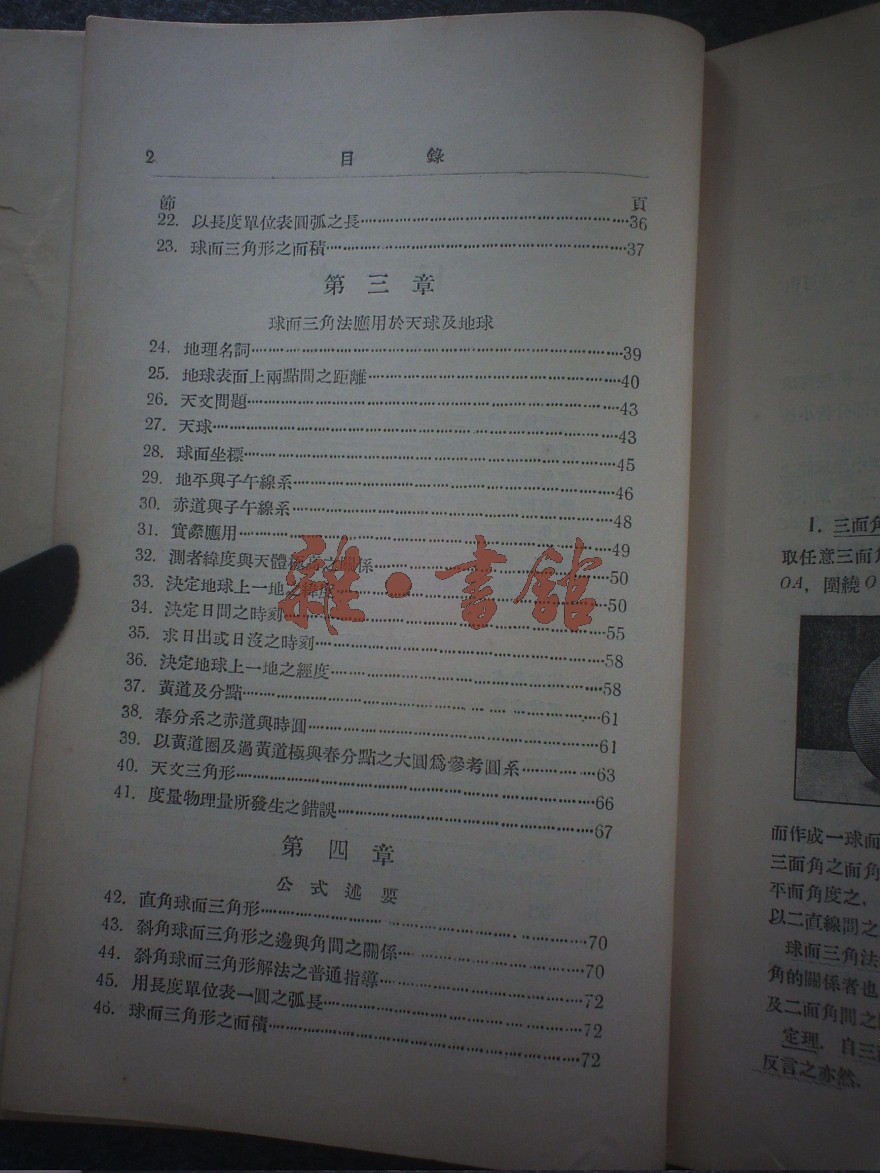 2 目錄
節 頁
22. 以長度單位表圓弧之長……36
23. 球面三角形之面積……37
第三章
球面三角法應用於天球及地球
24. 地理名詞……39
25. 地球表面上兩點間之距離……40
26. 天文問題……43
27. 天球……43
28. 球面坐標……45
29. 地平與子午線系……46
30. 赤道與子午線系……48
31. 實際應用……49
32. 測者緯度與天體極高之關係……50
33. 決定地球上一地之緯度……50
34. 決定日間之時刻……55
35. 求日出或日沒之時刻……58
36. 決定地球上一地之經度……58
37. 黃道及分點……61
38. 春分系之赤道與時圓……61
39. 以黃道圈及過黃道極與春分點之大圓爲參考圓系……63
40. 天文三角形……66
41. 度量物理量所發生之錯誤……67
第四章
公式述要
42. 直角球面三角形……70
43. 斜角球面三角形之邊與角間之關係……70
44. 斜角球面三角形解法之普通指導……72
45. 用長度單位表一圓之弧長……72
46. 球面三角形之面積……72
雜·書館
1. 三面角
取任意三面角
OA, 圍繞 O
而作成一球面
三面角之面角
平面角度之,
以二直線間之
球面三角法
角的關係者也
及二面角間之
定理. 自三面
反言之亦然.